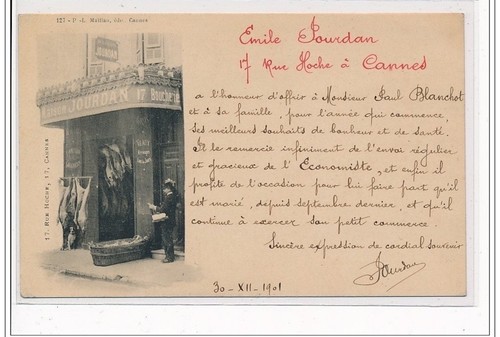 127 - P. L. Maillan, édr. Cannes
Emile Jourdan
17 Rue Hoche à Cannes
JOURDAN
17 Boucherie
17. RUE HOCHE, 17. CANNES
a l'honneur d'offrir à Monsieur Paul Blanchot
et à sa famille, pour l'année qui commence,
ses meilleurs souhaits de bonheur et de santé.
Il le remercie infiniment de l'envoi régulier
et gracieux de l'Économiste, et enfin il
profite de l'occasion pour lui faire part qu'il
est marié, depuis septembre dernier, et qu'il
continue à exercer son petit commerce.
Sincère expression de cordial souvenir
Jourdan
30 - XII - 1901